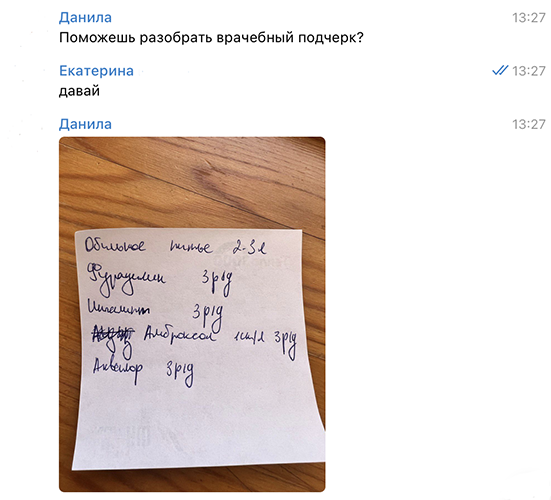 Данила 13:27
Поможешь разобрать врачебный подчерк?
Екатерина 13:27
давай
Данила 13:27
Обильное питье 2-3 л
Фурацилин 3 р/д
3 р/д
Амброксол 3 р/д
Аквалор 3 р/д